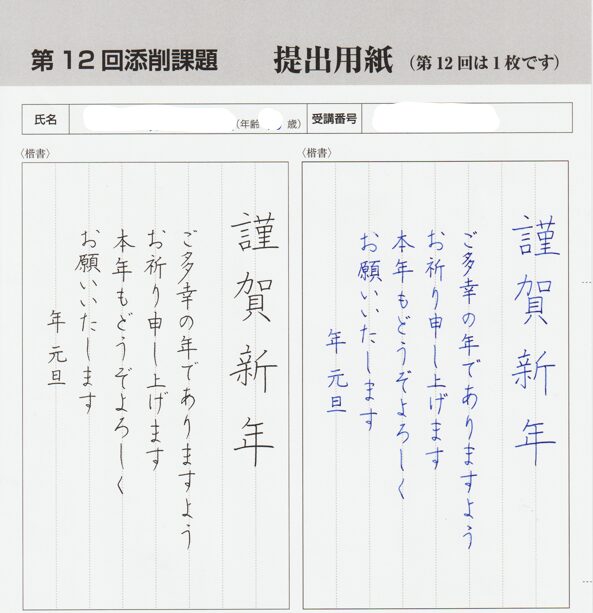 第12回添削課題 提出用紙 (第12回は1枚です)
氏名 (年齢 歳) 受講番号
〈楷書〉
謹賀新年
ご多幸の年でありますよう
お祈り申し上げます
本年もどうぞよろしく
お願いいたします
年 元旦
〈楷書〉
謹賀新年
ご多幸の年でありますよう
お祈り申し上げます
本年もどうぞよろしく
お願いいたします
年 元旦